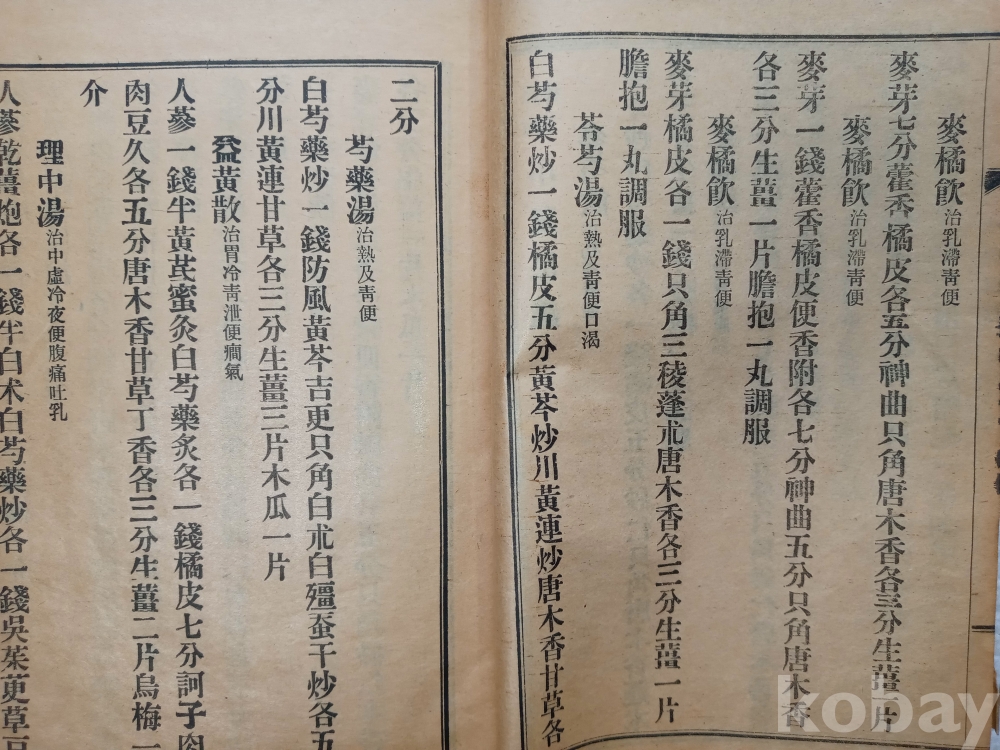 麥橘飮 治乳滯靑便
麥芽七分藿香橘皮各五分神曲只角唐木香各三分生薑一片
麥橘飮 治乳滯靑便
麥芽一錢藿香橘皮便香附各七分神曲五分只角唐木香
各三分生薑一片膽抱一丸調服
麥橘飮 治乳滯靑便
麥芽橘皮各一錢只角三稜蓬朮唐木香各三分生薑一片
膽抱一丸調服
荅芍湯 治熱及靑便口渴
白芍藥炒一錢橘皮五分黃芩炒川黃連炒唐木香甘草各
二分
芍藥湯 治熱及靑便
白芍藥炒一錢防風黃芩吉更只角白朮白殭蚕干炒各五
分川黃連甘草各三分生薑三片木瓜一片
益黃散 治胃冷靑泄便癎氣
人蔘一錢半黃芪蜜灸白芍藥炙各一錢橘皮七分訶子肉
肉豆久各五分唐木香甘草丁香各三分生薑二片烏梅一
介
理中湯 治中虛冷夜便腹痛吐乳
人蔘乾薑炮各一錢半白朮白芍藥炒各一錢吳茱萸草豆
kobay